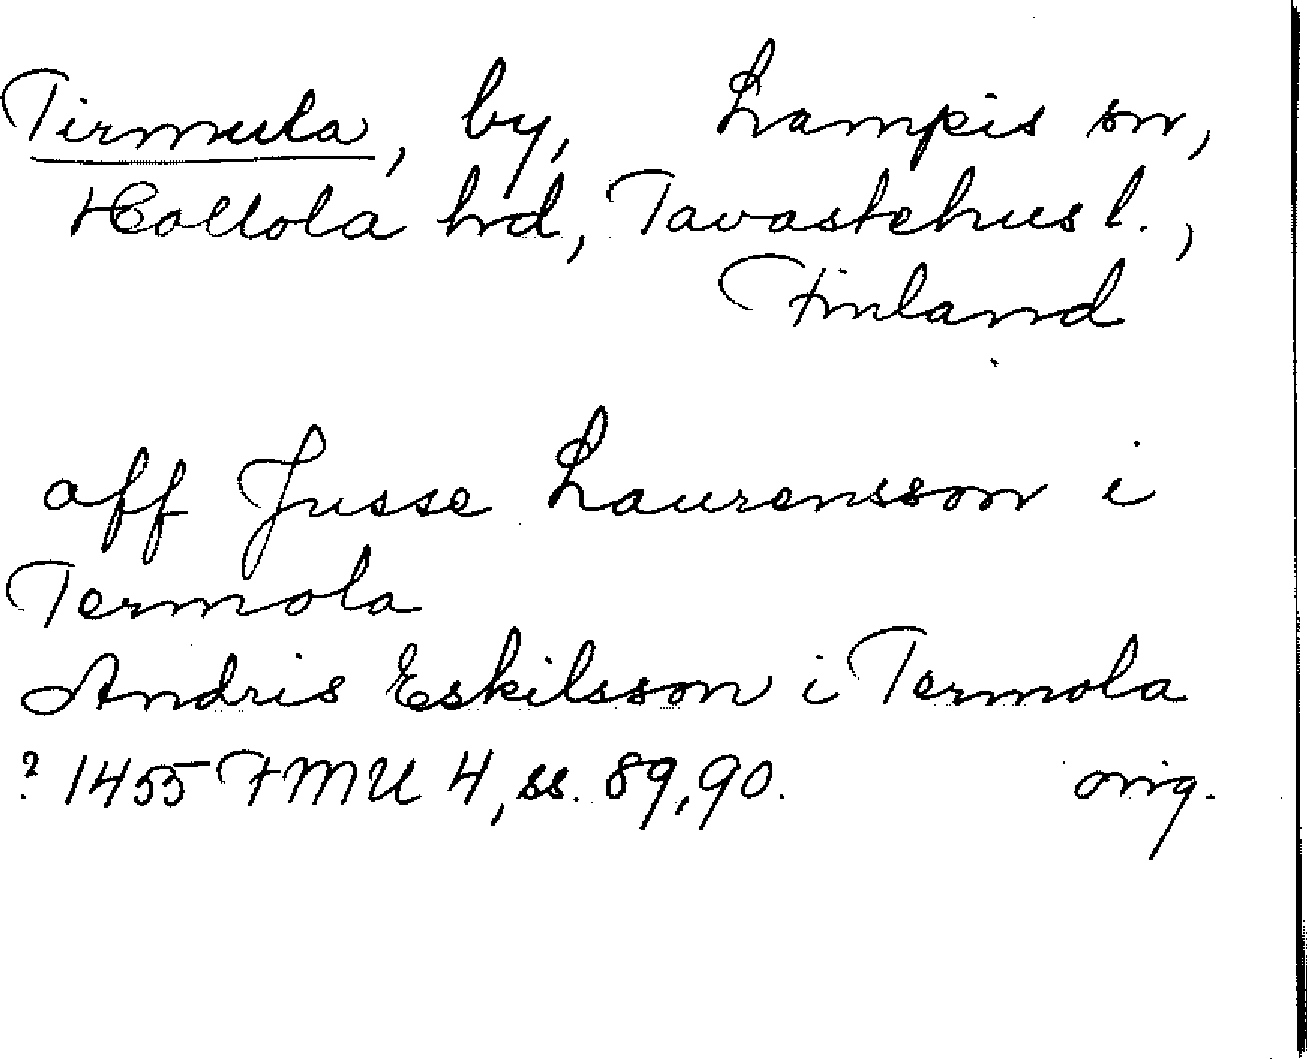 Tirmula, by, Lampis sn,
Hollola hrd, Tavastehus l.,
Finland
aff Jusse Laurensson i
Termola
Andris Eskilsson i Termola
? 1455 FMU 4, ss. 89, 90. orig.